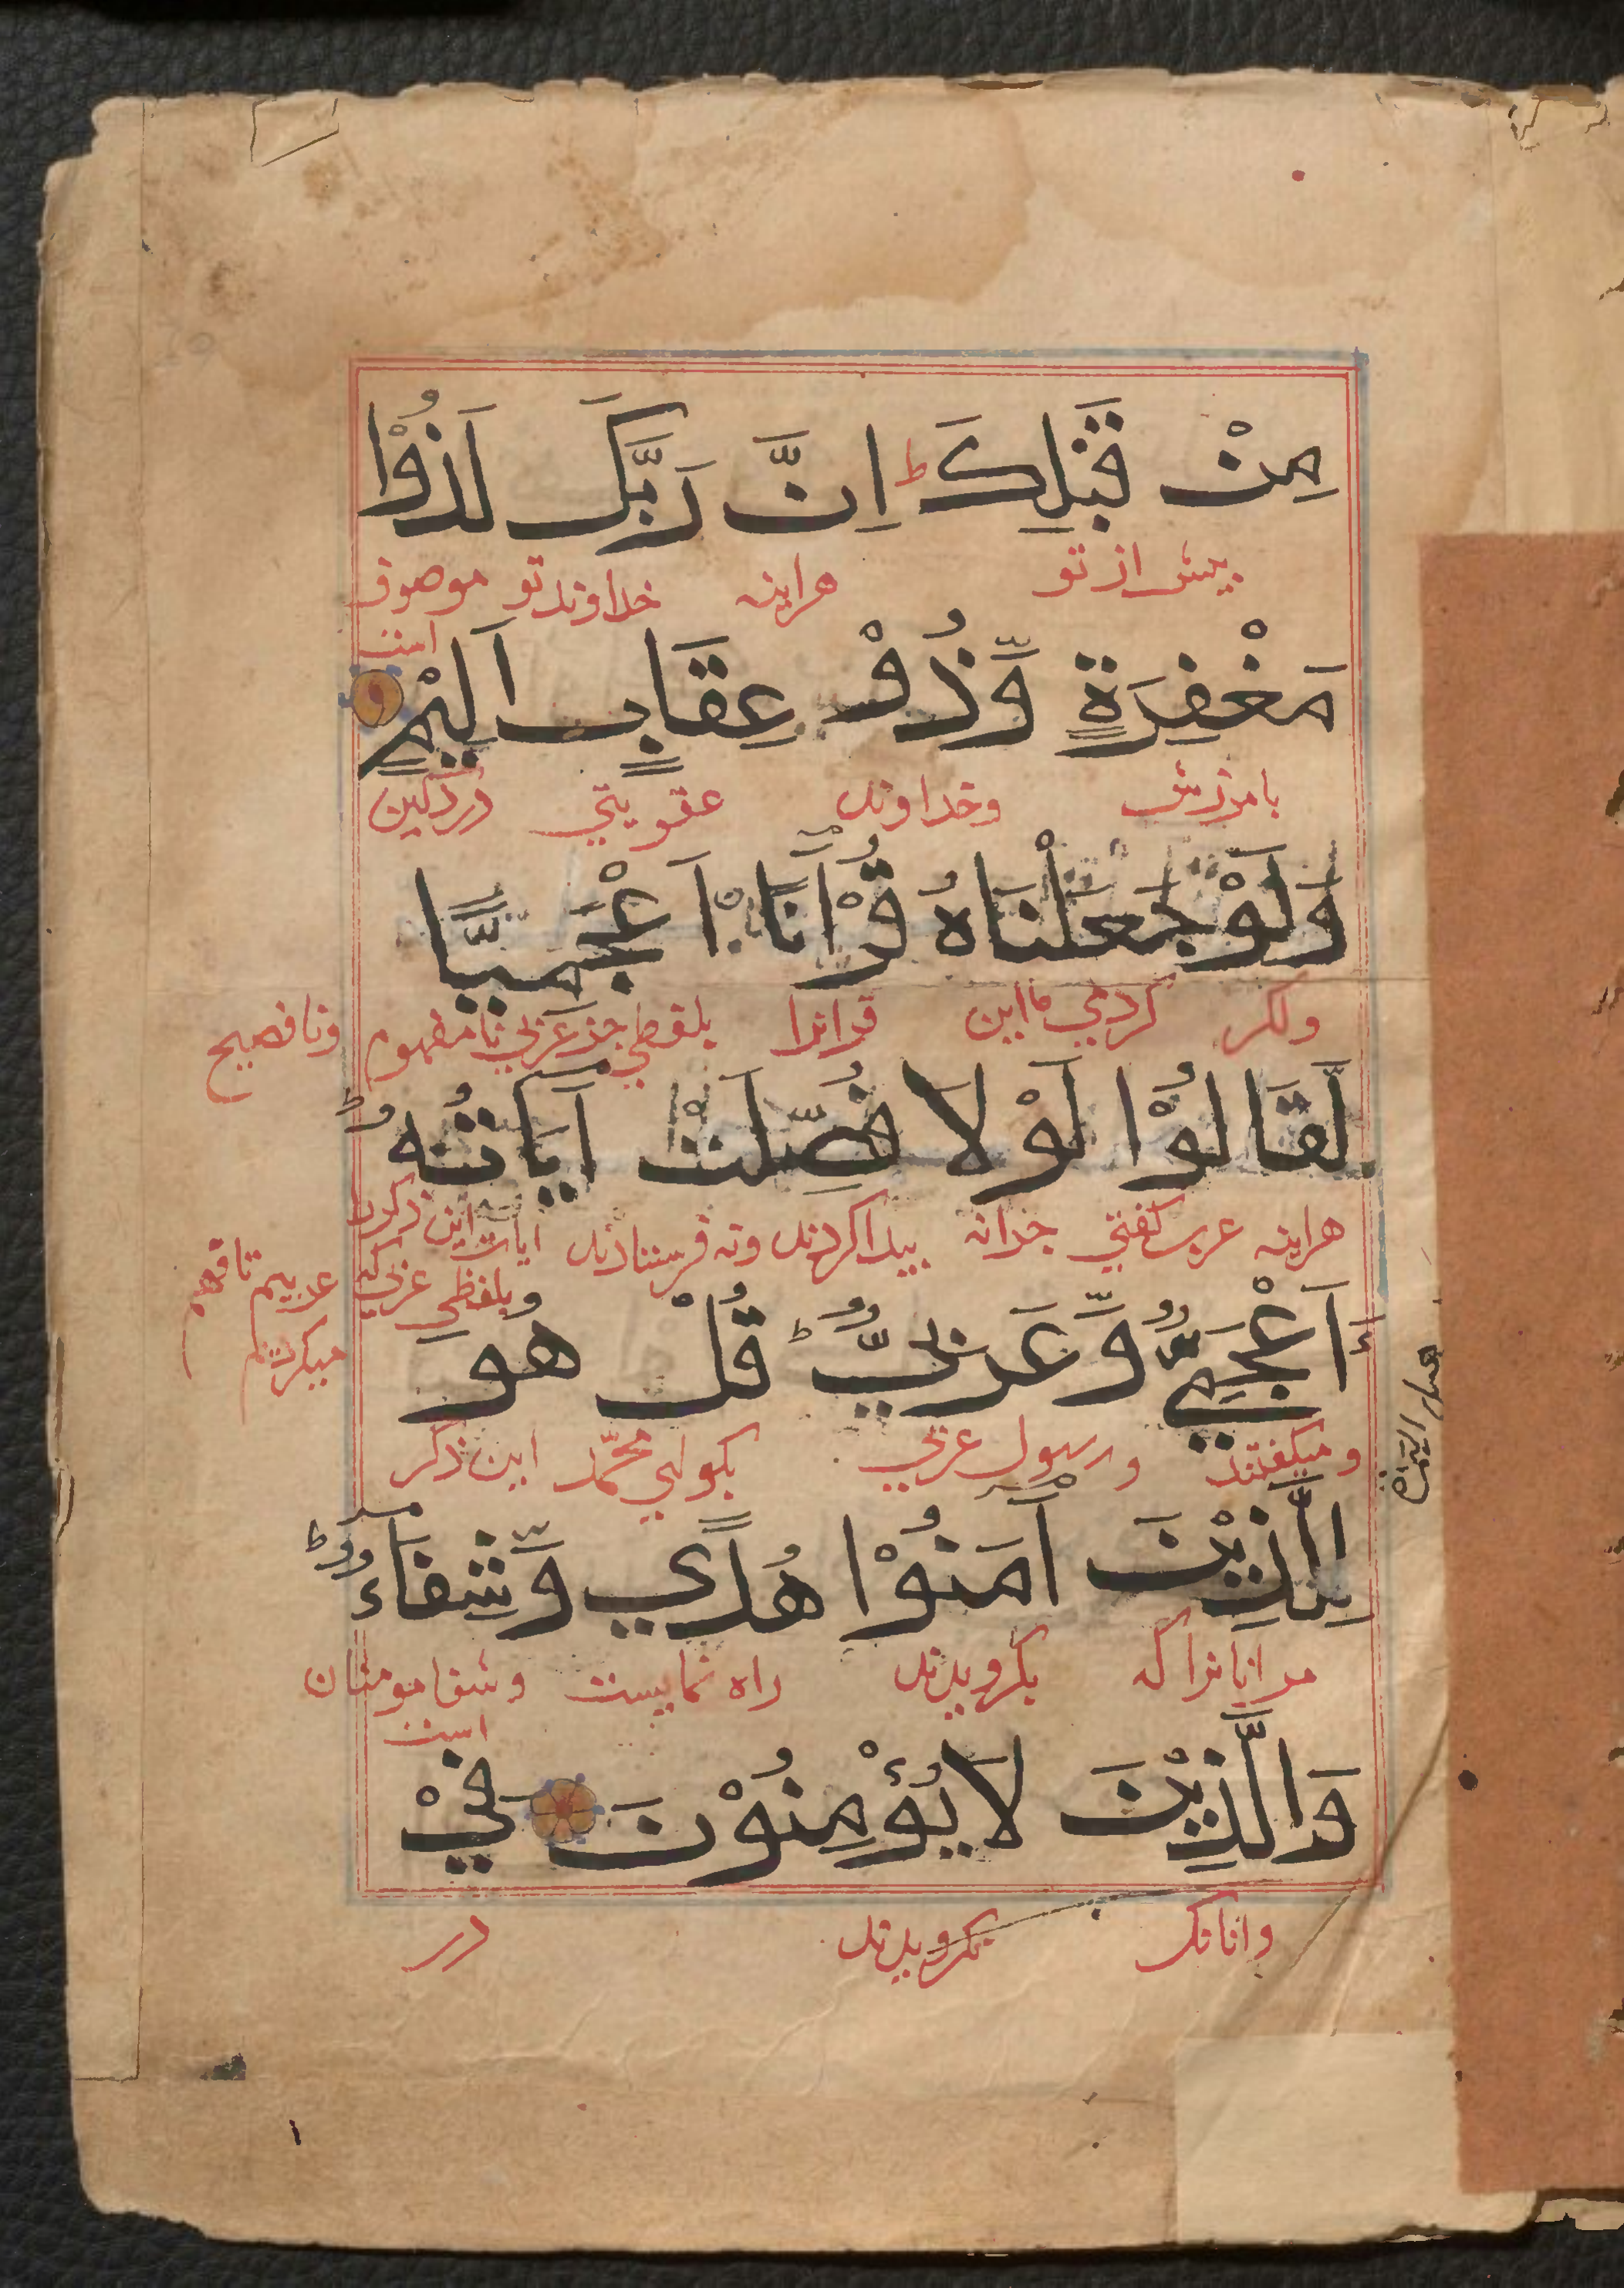 مِنْ قَبْلِكَ ط اِنَّ رَبَّكَ لَذُوْا
پیش از تو هراینه خداوند تو موصوف
است
مَغْفِرَةٍ وَّذُوْ عِقَابٍ اَلِيْمٍ
بامرزش وخداوند عقوبتي دردکین
وَلَوْ جَعَلْنَاهُ قُرْاٰنًا اَعْجَمِيًّا
ولکر کردمي ما این قرانرا بلفظي جز عربي نامفهوم ونافصیح
لَّقَالُوْا لَوْلَا فُصِّلَتْ اٰيَاتُهُ ط
هراینه عرب کفتي جرانه پیدا کردند ونه فرستادند ایات این ذکررا
بلفظي عربي که
عربیم تا فهم
میکردیم
ءَاَعْجَمِيٌّ وَّعَرَبِيٌّ ط قُلْ هُوَ
ومیکفتند ورسول عربي بکو اي محمّد این ذکر
لِلَّذِيْنَ اٰمَنُوْا هُدًي وَّشِفَاءٌ ط
مر انانرا که بکرویدند راه نماییست وشفا مومنان
است
وَالَّذِيْنَ لَا يُؤْمِنُوْنَ فِيْ
وانانک نکرویدند در
۱